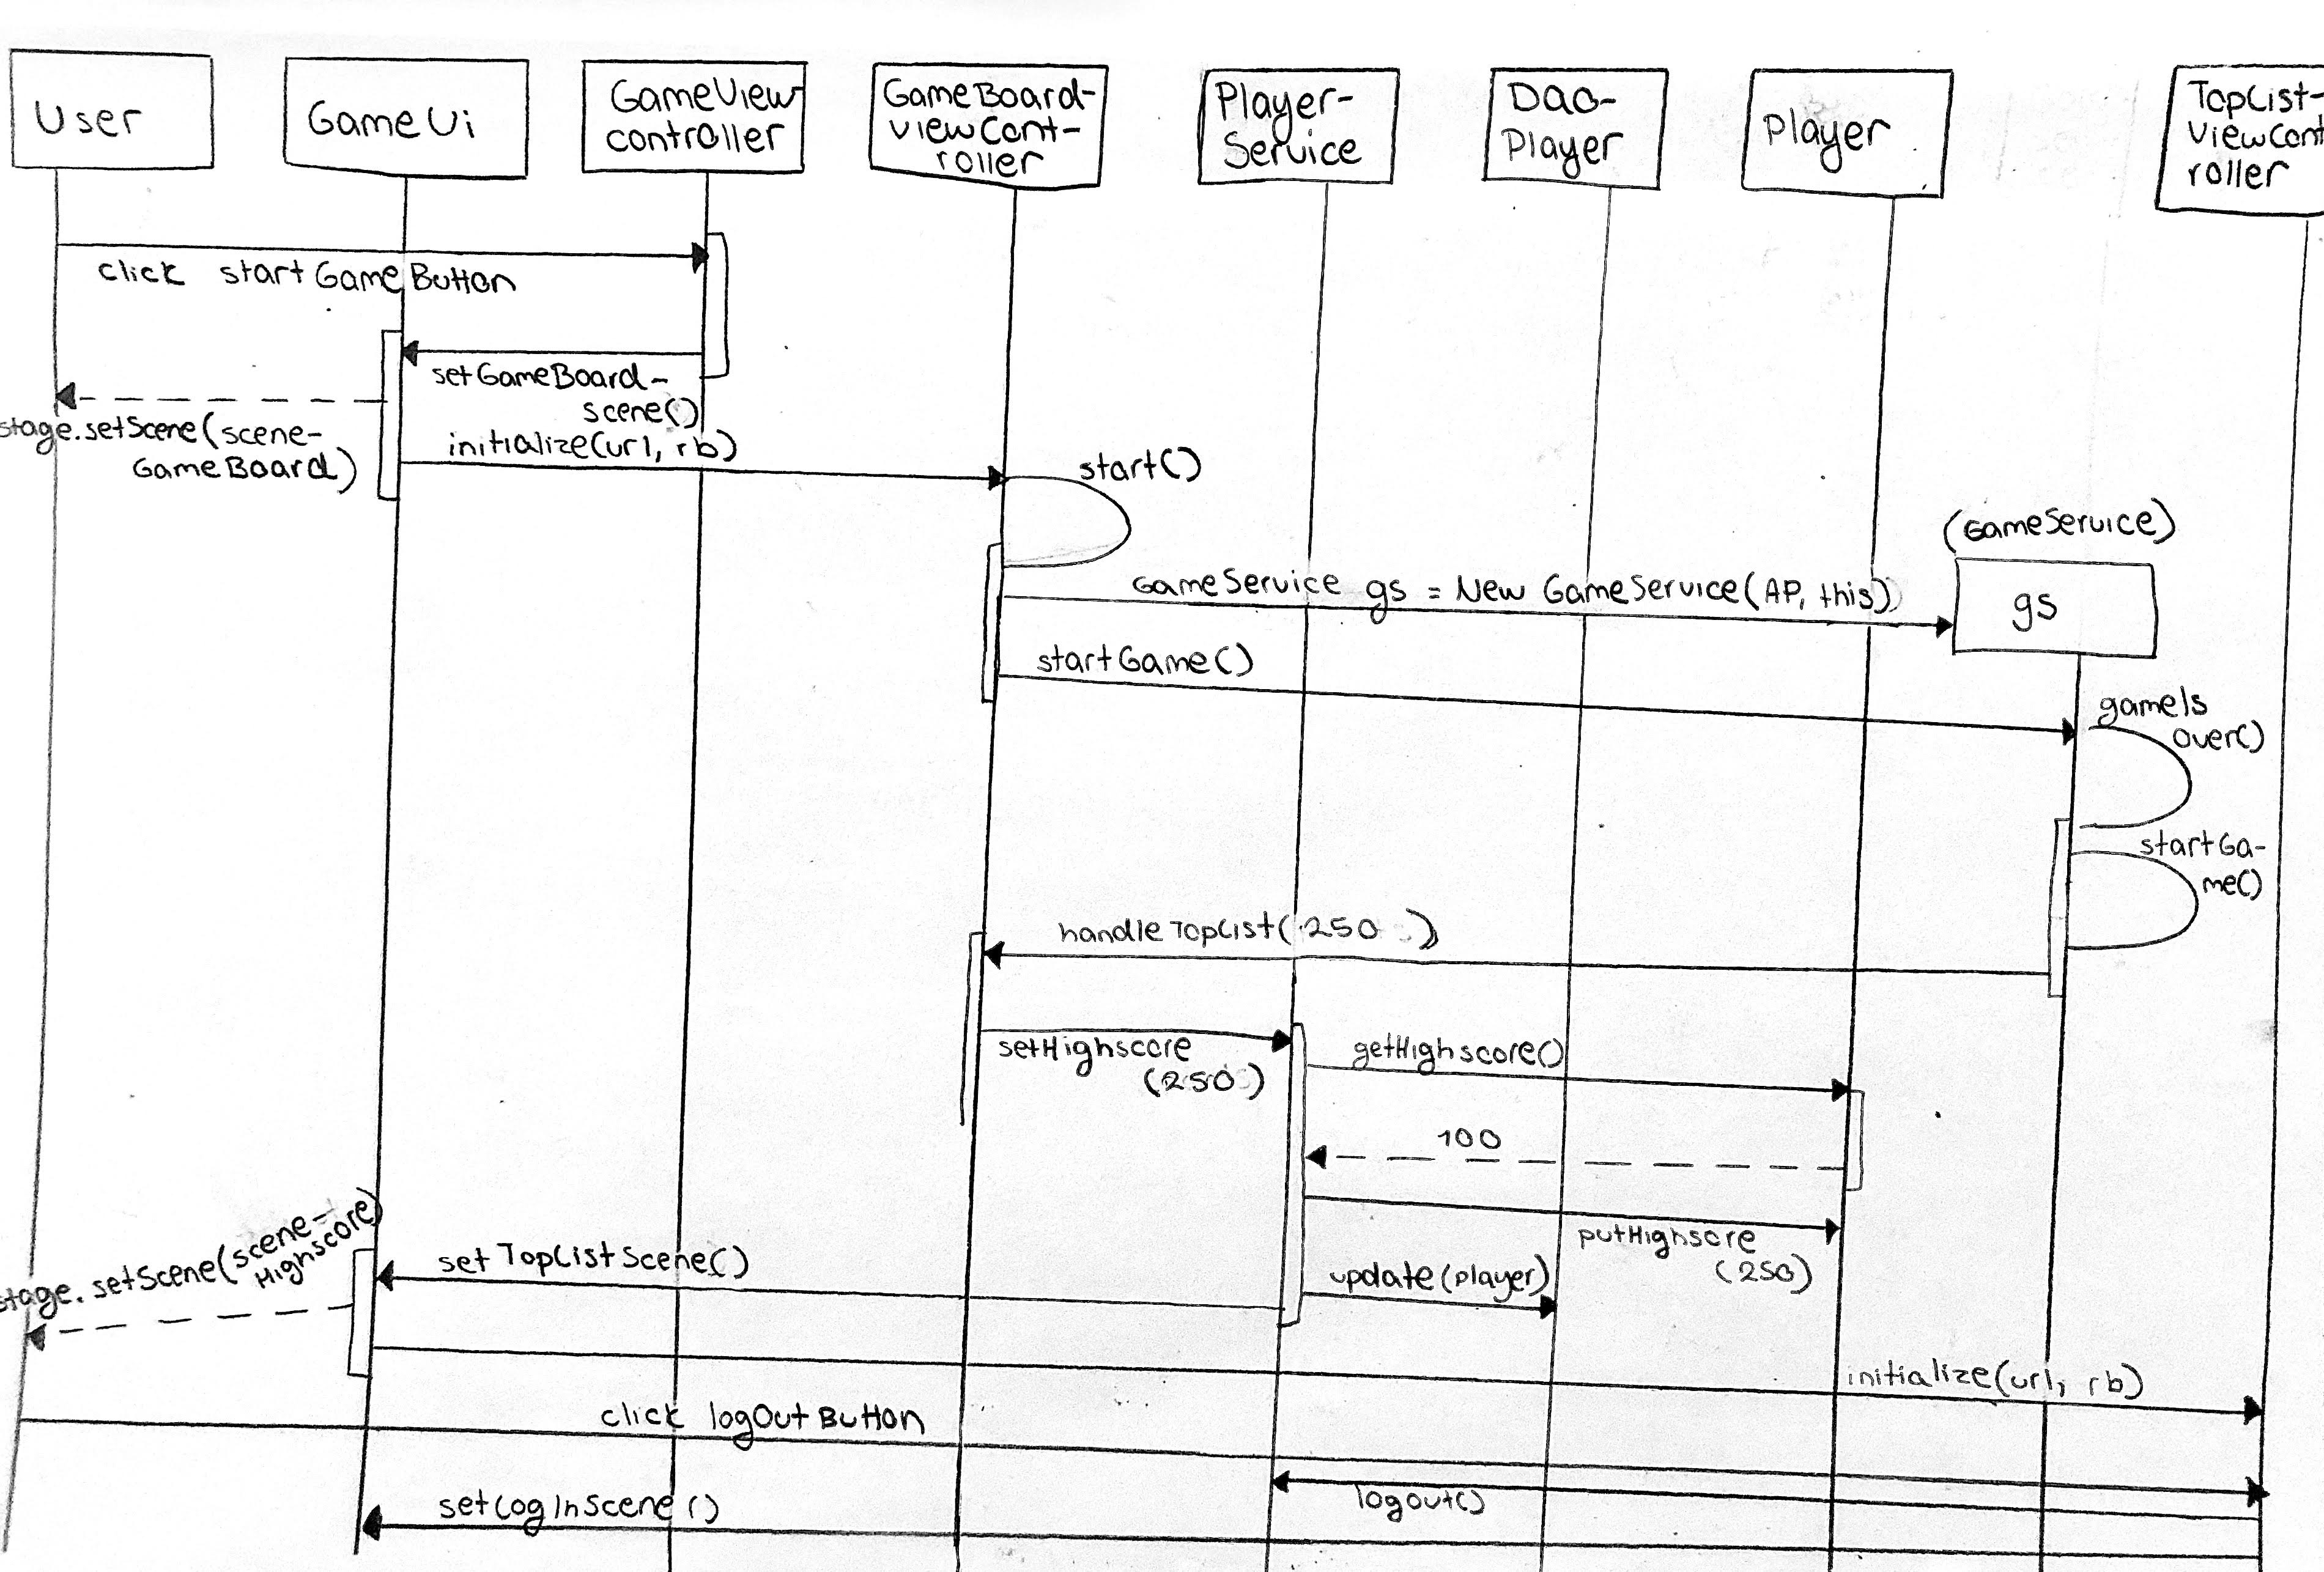 User
GameUi
GameView-
controller
GameBoard-
viewCont-
roller
Player-
Service
Dao-
Player
Player
TopList-
ViewCont
roller
click startGameButton
setGameBoard-
scene()
stage.setScene(scene-
GameBoard)
initialize(url, rb)
start()
(GameService)
GameService gs = New GameService(AP, this)
gs
startGame()
gameIs
over()
startGa-
me()
handleTopList(250)
setHighscore
(250)
getHighscore()
100
putHighscre
(250)
stage.setScene(scene-
Highscore)
setTopListScene()
update(player)
initialize(url, rb)
click logOutButton
logout()
setLogInScene()